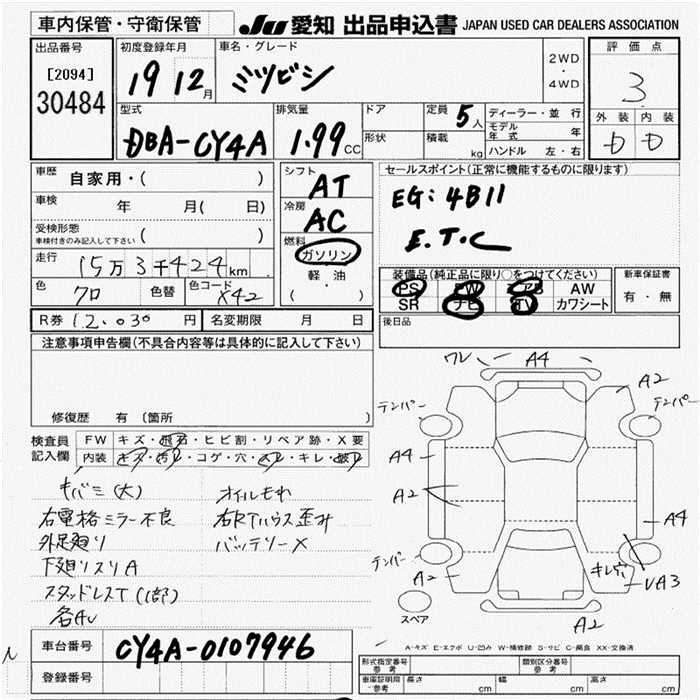 車内保管・守衛保管
JU 愛知 出品申込書 JAPAN USED CAR DEALERS ASSOCIATION
出品番号
[2094]
30484
初度登録年月
19 12月
車名・グレード
ミツビシ
2WD
・
4WD
評価点
3
外装 内装
D D
型式
DBA-CY4A
排気量
1.99 CC
ドア
形状
定員 5人
積載 kg
ディーラー・並行
モデル年式 年
ハンドル 左・右
車歴 自家用・( )
車検 年 月( 日)
受検形態
車検付きのみ記入して下さい ( )
走行 15万3千424km
色 クロ 色替 色コード X42
シフト AT
冷房 AC
燃料
ガソリン
軽油
( )
セールスポイント(正常に機能するものに限ります)
EG: 4B11
E.T.C
装備品(純正品に限り○をつけてください)
PS PW AB AW
SR ナビ TV カワシート
新車保証書
有・無
R券 12,030 円 名変期限 月 日
後日品
注意事項申告欄(不具合内容等は具体的に記入して下さい)
修復歴 有 (箇所 )
検査員記入欄
FW キズ・飛石・ヒビ割・リペア跡・X要
内装 キズ・汚レ・コゲ・穴・スレ・キレ・破レ
キバミ(大)
右電格ミラー不良
外足廻り
下廻りスリA
スタッドレスT(1部)
各AU
オイルモれ
右Rタハウス歪み
バッテリーX
ワレ A4
A2
テンパー
テンパー
A4
A2
A4
テンパー
A2
キレ穴
UA3
スペア
A2
A-キズ E-エクボ U-凹み W-補修跡 S-サビ C-腐食 XX-交換済
車台番号 CY4A-0107946
登録番号
形式指定番号 参考
類別区分番号 参考
車庫証明用 参考 長さ cm 幅 cm 高さ cm